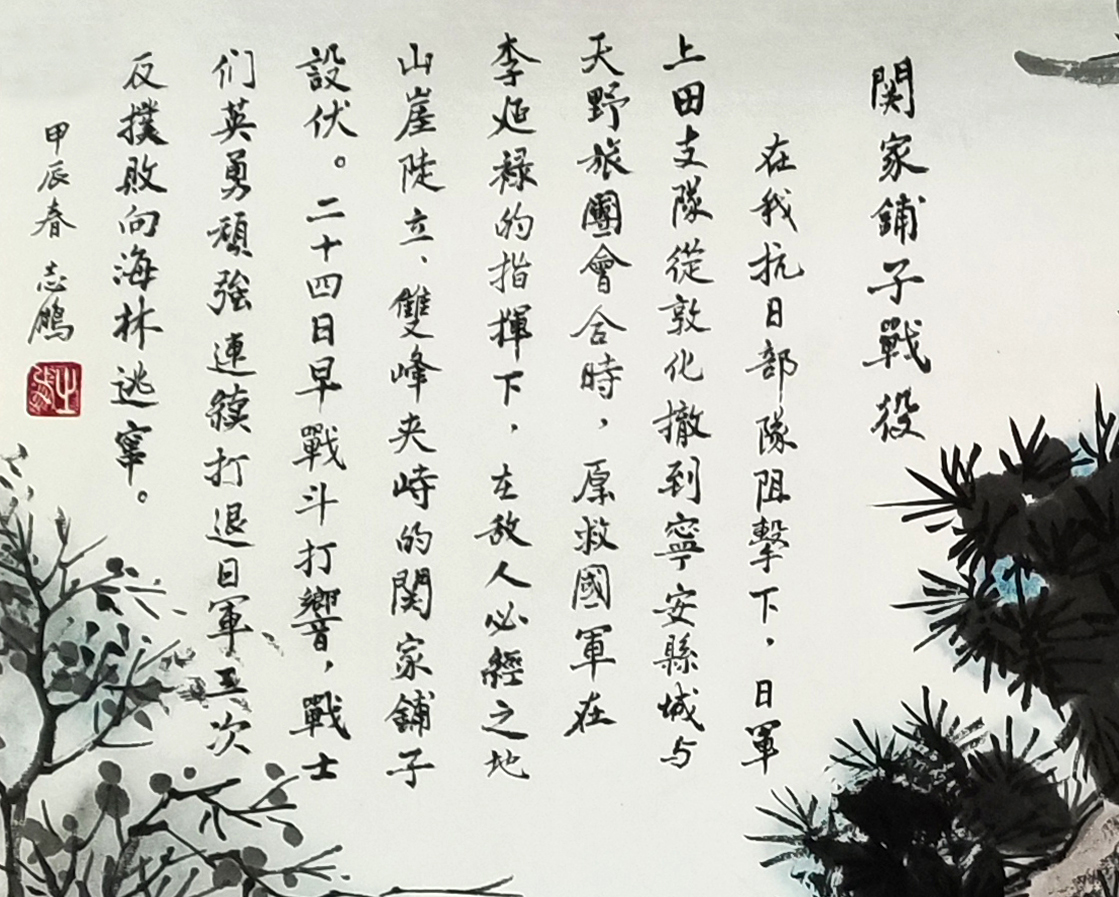 関家鋪子戰役
在我抗日部隊阻擊下，日軍
上田支隊從敦化撤到寧安縣城与
天野旅團會合時，原救國軍在
李延禄的指揮下，在敌人必經之地
山崖陡立、雙峰夹峙的関家鋪子
設伏。二十四日早戰斗打響，戰士
们英勇頑強連續打退日軍五次
反撲敗向海林逃窜。
甲辰春 志鵬